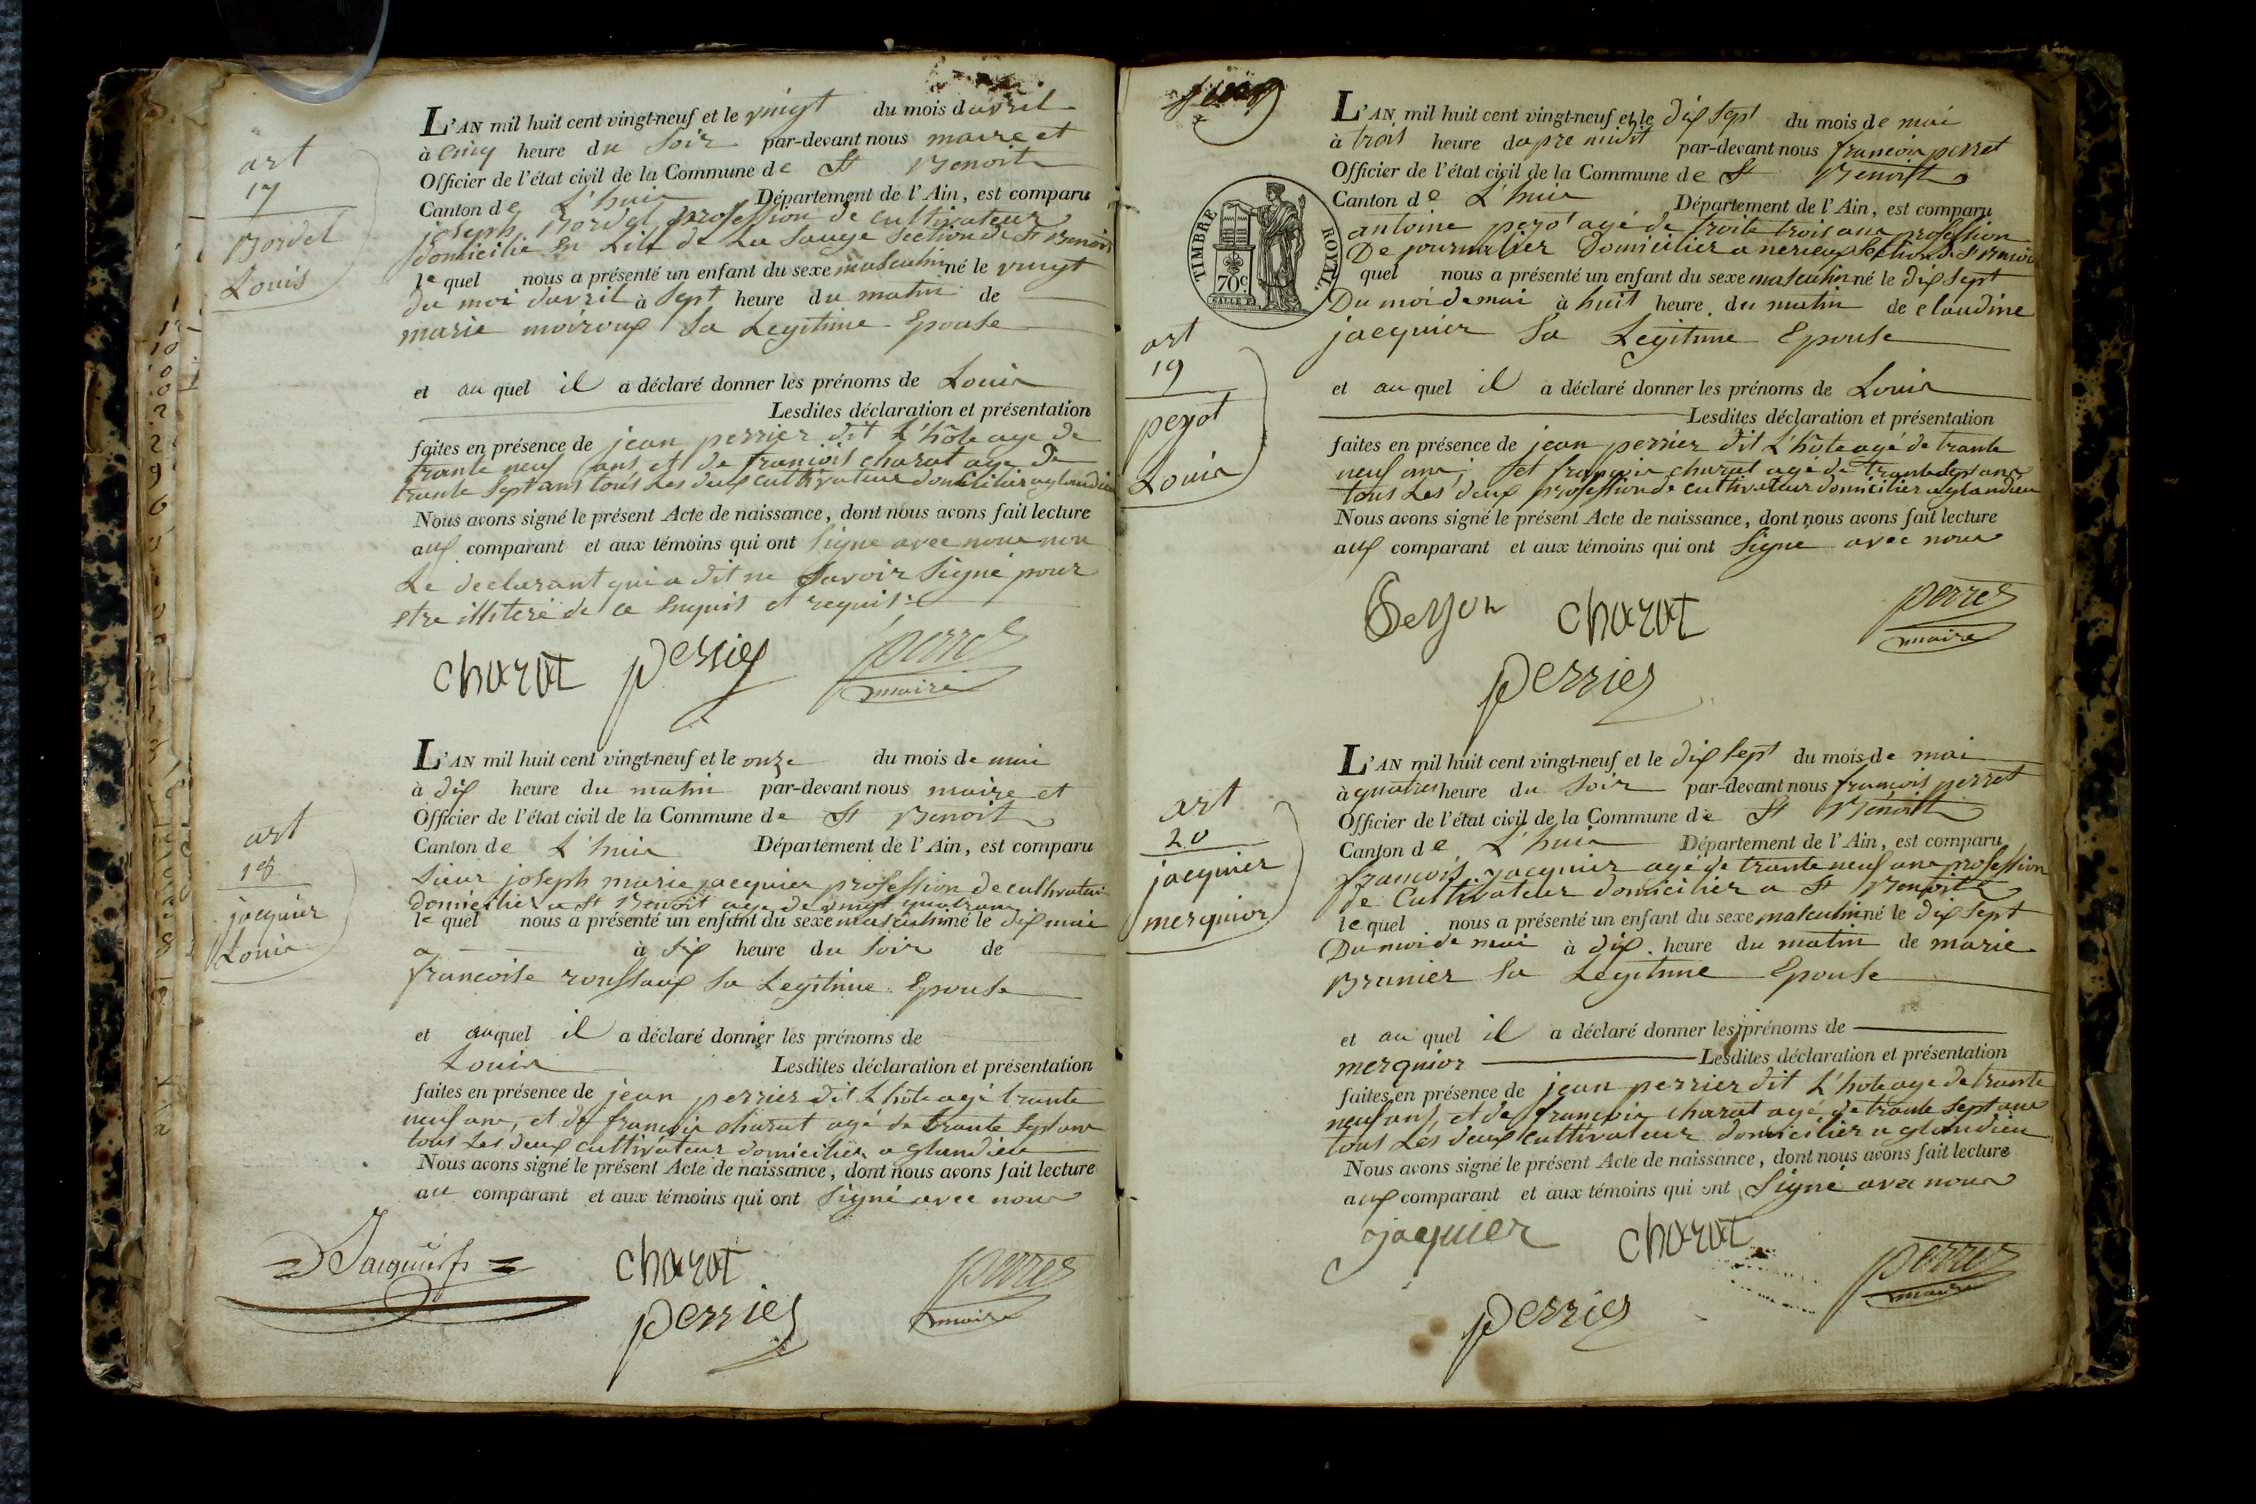 art
17
Bordel
Louis
L'AN mil huit cent vingt-neuf et le vingt du mois d avril
à cinq heure du soir par-devant nous maire et
Officier de l'état civil de la Commune de St Benoit
Canton de L'huis Département de l'Ain, est comparu
joseph Bordel profession de cultivateur
domicilié en Lile de La Sauge Section de St Benoit
le quel nous a présenté un enfant du sexe masculin né le vingt
du moi davril à sept heure du matin de
marie moiroux sa Legitime Epouse
et au quel il a déclaré donner les prénoms de Louis
Lesdites déclaration et présentation
faites en présence de jean perrier dit L'hôte age de
trante neuf ans et de françois charat age de
trante sept ans tous les deux cultivateur domicilier a glandieu
Nous avons signé le présent Acte de naissance, dont nous avons fait lecture
aux comparant et aux témoins qui ont signe avec nous non
Le declarant qui a dit ne savoir signé pour
etre illiteré de ce enquis et requis
charat perrier perret
maire
art
18
jacquier
Louis
L'AN mil huit cent vingt-neuf et le onze du mois de mai
à dix heure du matin par-devant nous maire et
Officier de l'état civil de la Commune de St Benoit
Canton de L'huis Département de l'Ain, est comparu
Sieur joseph marie jacquier profession de cultivateur
domicilier a St Benoit age de vingt quatre ans
le quel nous a présenté un enfant du sexe masculin né le dix mai
à six heure du soir de
francoise roussaux sa Legitime Epouse
et auquel il a déclaré donner les prénoms de
Louis Lesdites déclaration et présentation
faites en présence de jean perrier dit L'hôte agé trante
neuf ans, et de françois charat agé de trante sept ans
tous Les deux cultivateur domicilier a glandieu
Nous avons signé le présent Acte de naissance, dont nous avons fait lecture
au comparant et aux témoins qui ont signé avec nous
charat perret
perrier maire
TIMBRE ROYAL.
70c
SALLE
art
19
peyot
Louis
L'AN mil huit cent vingt-neuf et le dix sept du mois de mai
à trois heure dapre midit par-devant nous francois perret
Officier de l'état civil de la Commune de St Benoit
Canton de L'huis Département de l'Ain, est comparu
antoine peyot agé de troite trois ans profession
De journalier Domicilier a nerieux Section de St Benoit
quel nous a présenté un enfant du sexe masculin né le dix sept
Du moi de mai à huit heure du matin de claudine
jacquier sa Legitime Epouse
et au quel il a déclaré donner les prénoms de Louis
Lesdites déclaration et présentation
faites en présence de jean perrier dit L'hôte agé de trante
neuf ans, et françois charat agé de trante sept ans
tous Les deux profession de cultivateur domicilier a glandieu
Nous avons signé le présent Acte de naissance, dont nous avons fait lecture
aux comparant et aux témoins qui ont signe avec nous
charat perret
maire
perrier
art
20
jacquier
merquior
L'AN mil huit cent vingt-neuf et le dix sept du mois de mai
à quatres heure du soir par-devant nous françois perret
Officier de l'état civil de la Commune de St Benoit
Canton de L'huis Département de l'Ain, est comparu
francois jacquier agé de trante neuf ans profession
de Cultivateur domicilier a St Benoit
le quel nous a présenté un enfant du sexe masculin né le dix sept
Du moi de mai à dix heure du matin de marie
Brunier sa Legitime Epouse
et au quel il a déclaré donner les prénoms de
merquior Lesdites déclaration et présentation
faites en présence de jean perrier dit L'hôte age de trante
neuf ans, et de françois charat agé de trante sept ans
tous Les deux cultivateur domicilier a glandieu
Nous avons signé le présent Acte de naissance, dont nous avons fait lecture
aux comparant et aux témoins qui ont signé avec nous
jaquier charat perret
maire
perrier